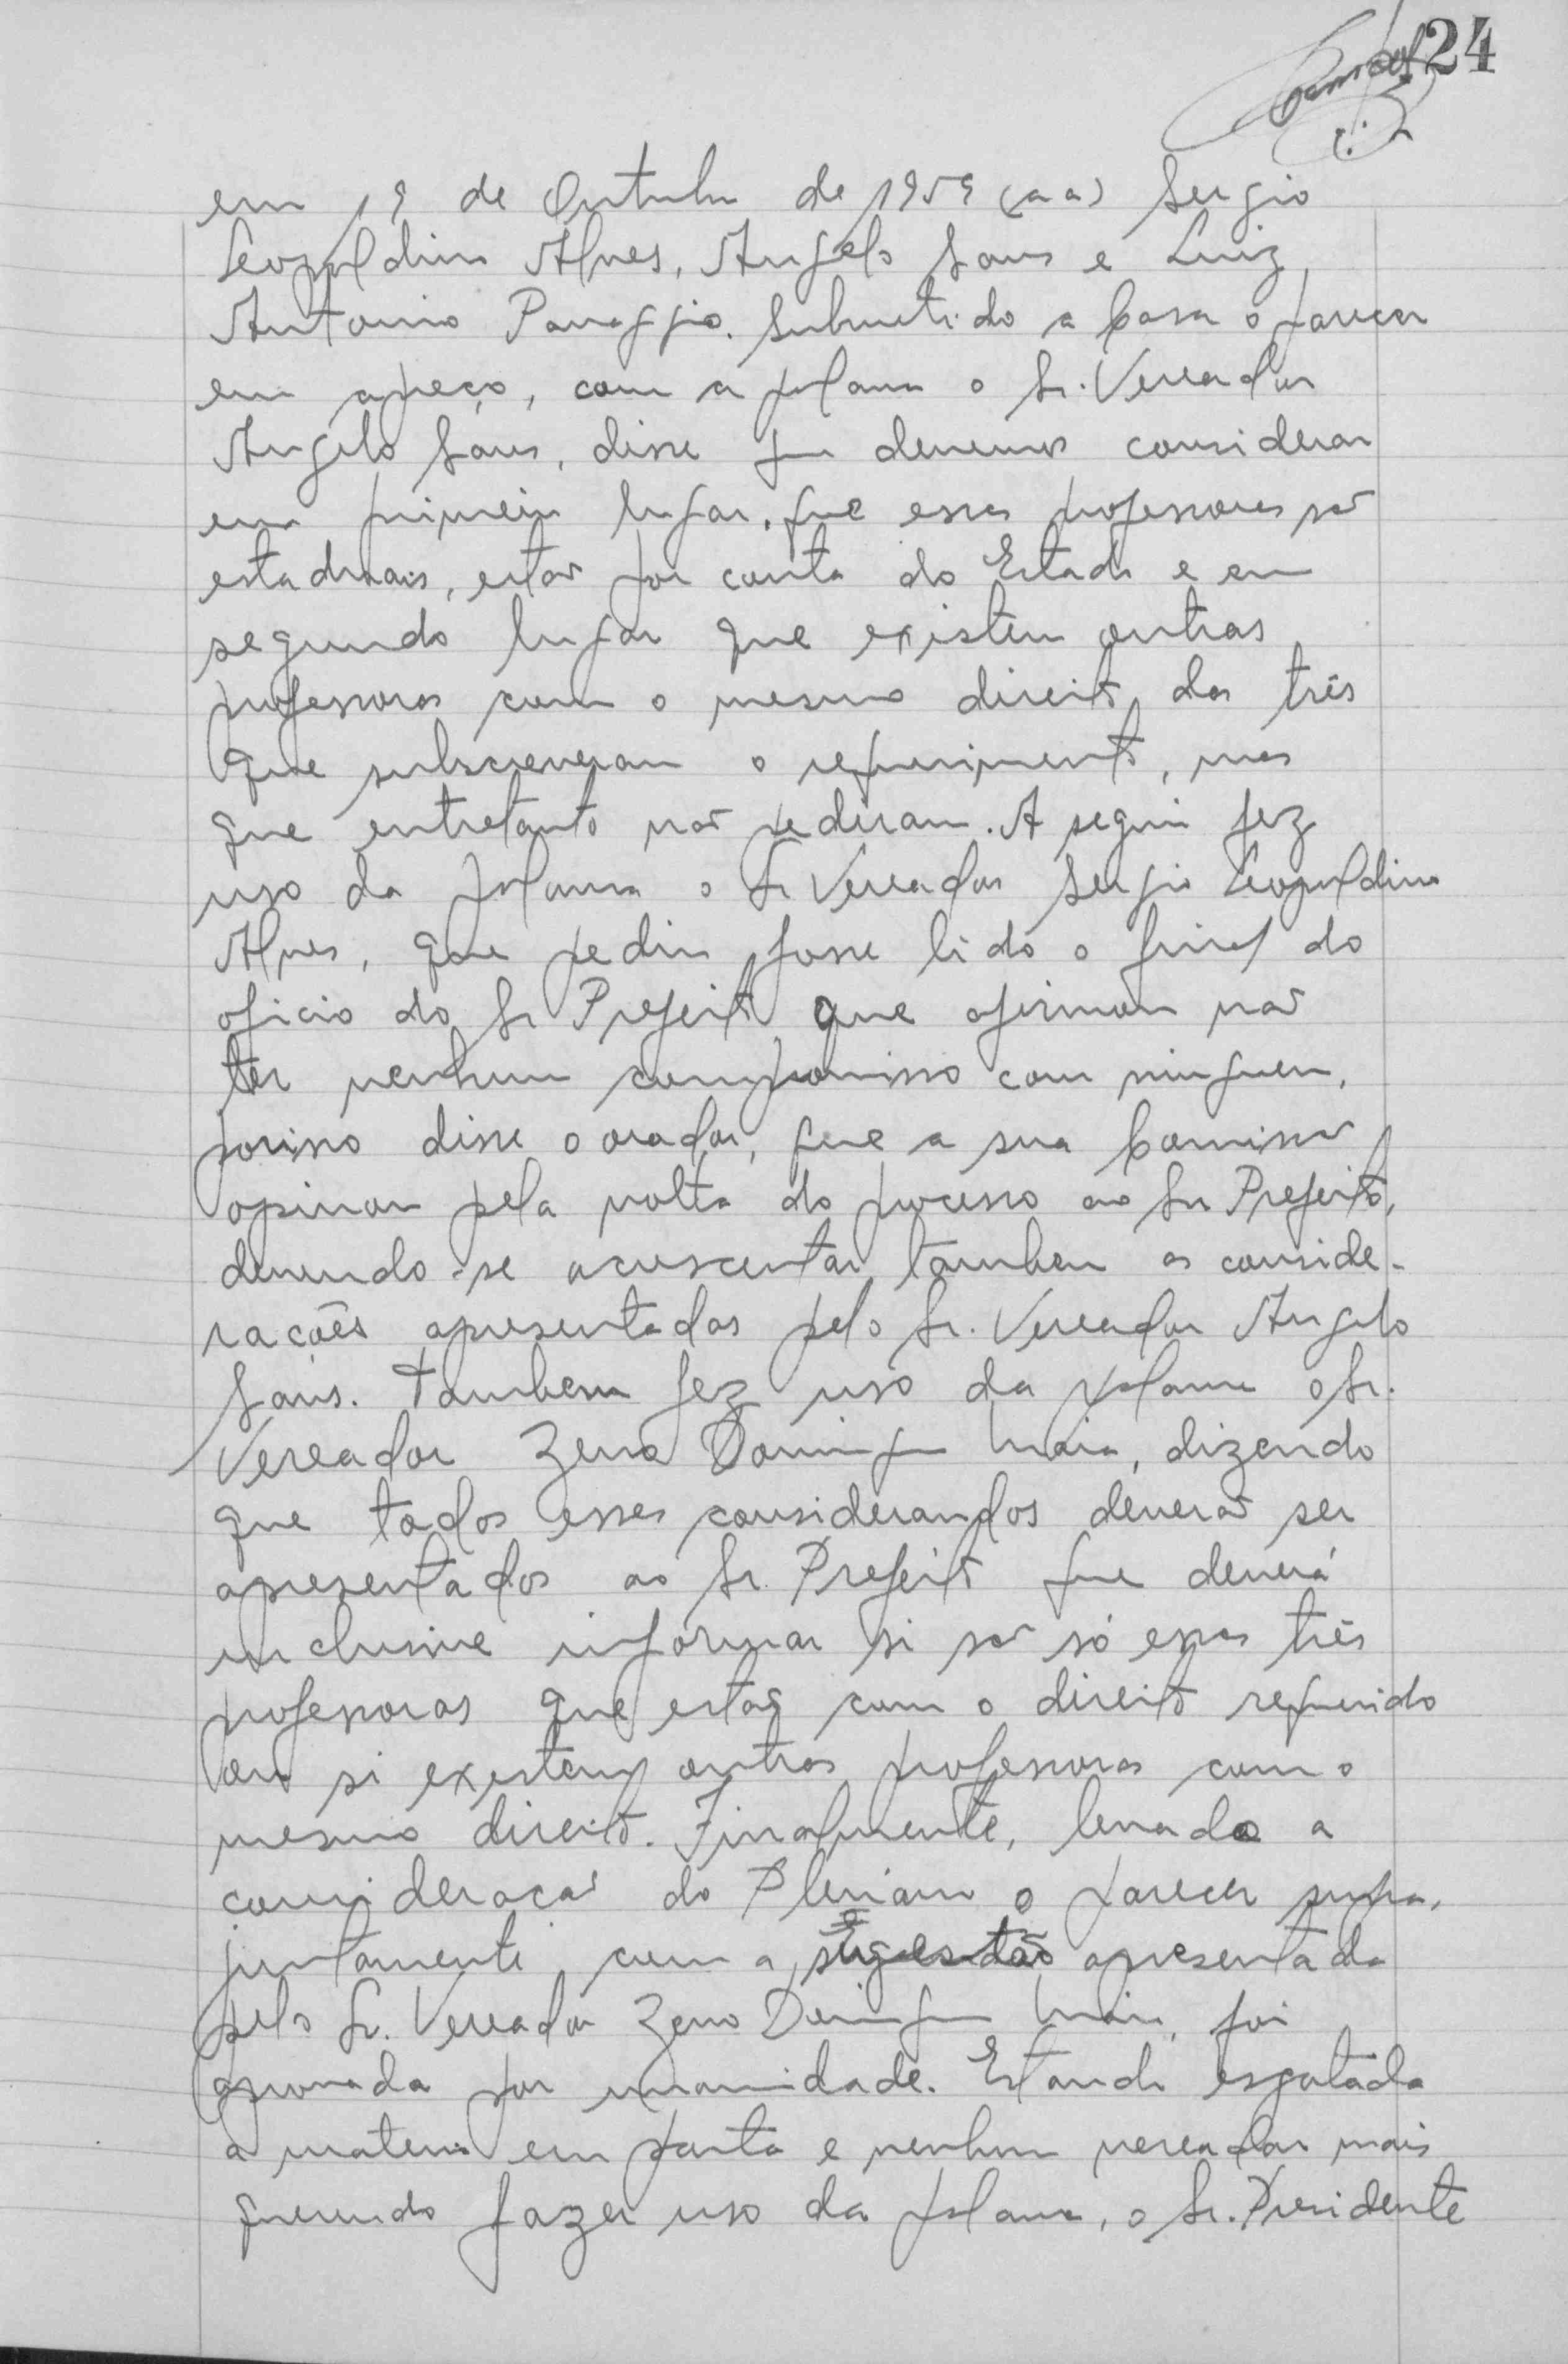 24
em 19 de Outubro de 1959 (aa) Sergio
Leopoldino Alves, Angelo Sans e Luiz
Antonio Panaggio. Submetido a Casa o parecer
em apreço, com a palavra o Sr. Vereador
Angelo Sans, disse que devemos considerar
em primeiro lugar, que essas professoras são
estaduais, estão por conta do Estado e em
segundo lugar que existem outras
professoras com o mesmo direito das três
que subscreveram o requerimento, mas
que entretanto não pediram. A seguir fez
uso da palavra o Sr Vereador Sergio Leopoldino
Alves, que pediu fosse lido o final do
oficio do Sr Prefeito que afirmou não
ter nenhum compromisso com ninguem,
porisso disse o orador, que a sua Comissão
opinou pela volta do processo ao Sr Prefeito,
devendo-se acrescentar tambem as conside-
rações apresentadas pelo Sr. Vereador Angelo
Sans. Tambem fez uso da palavra o Sr.
Vereador Zeno Domingues Maia, dizendo
que todos esses considerandos deverão ser
apresentados ao Sr. Prefeito que deverá
inclusive informar si são só essas três
professoras que estão com o direito requerido
ou si existem outras professoras com o
mesmo direito. Finalmente, levado a
consideração do Plenario o parecer supra,
juntamente com a sugestão apresentada
pelo Sr. Vereador Zeno Domingues Maia, foi
aprovada por unanimidade. Estando esgotada
a materia em pauta e nenhum vereador mais
querendo fazer uso da palavra, o Sr. Presidente